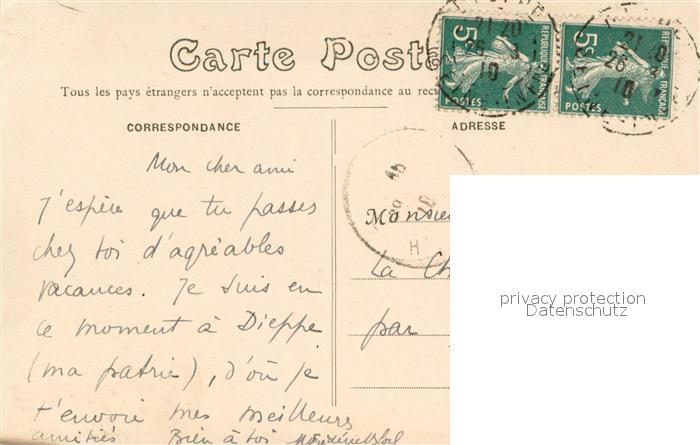 Carte Posta
Tous les pays étrangers n'acceptent pas la correspondance au rec
CORRESPONDANCE
Mon cher ami
J'espère que tu passes
chez toi d'agréables
vacances. Je suis en
ce moment à Dieppe
(ma patrie), d'où je
t'envoie mes meilleures
amitiés Bien à toi
ADRESSE
Monsieu
La Ch
par
5c
POSTES
REPUBLIQUE FRANÇAISE
21 20
26
10
5c
POSTES
REPUBLIQUE FRANÇAISE
21 20
26
10
H
privacy protection
Datenschutz